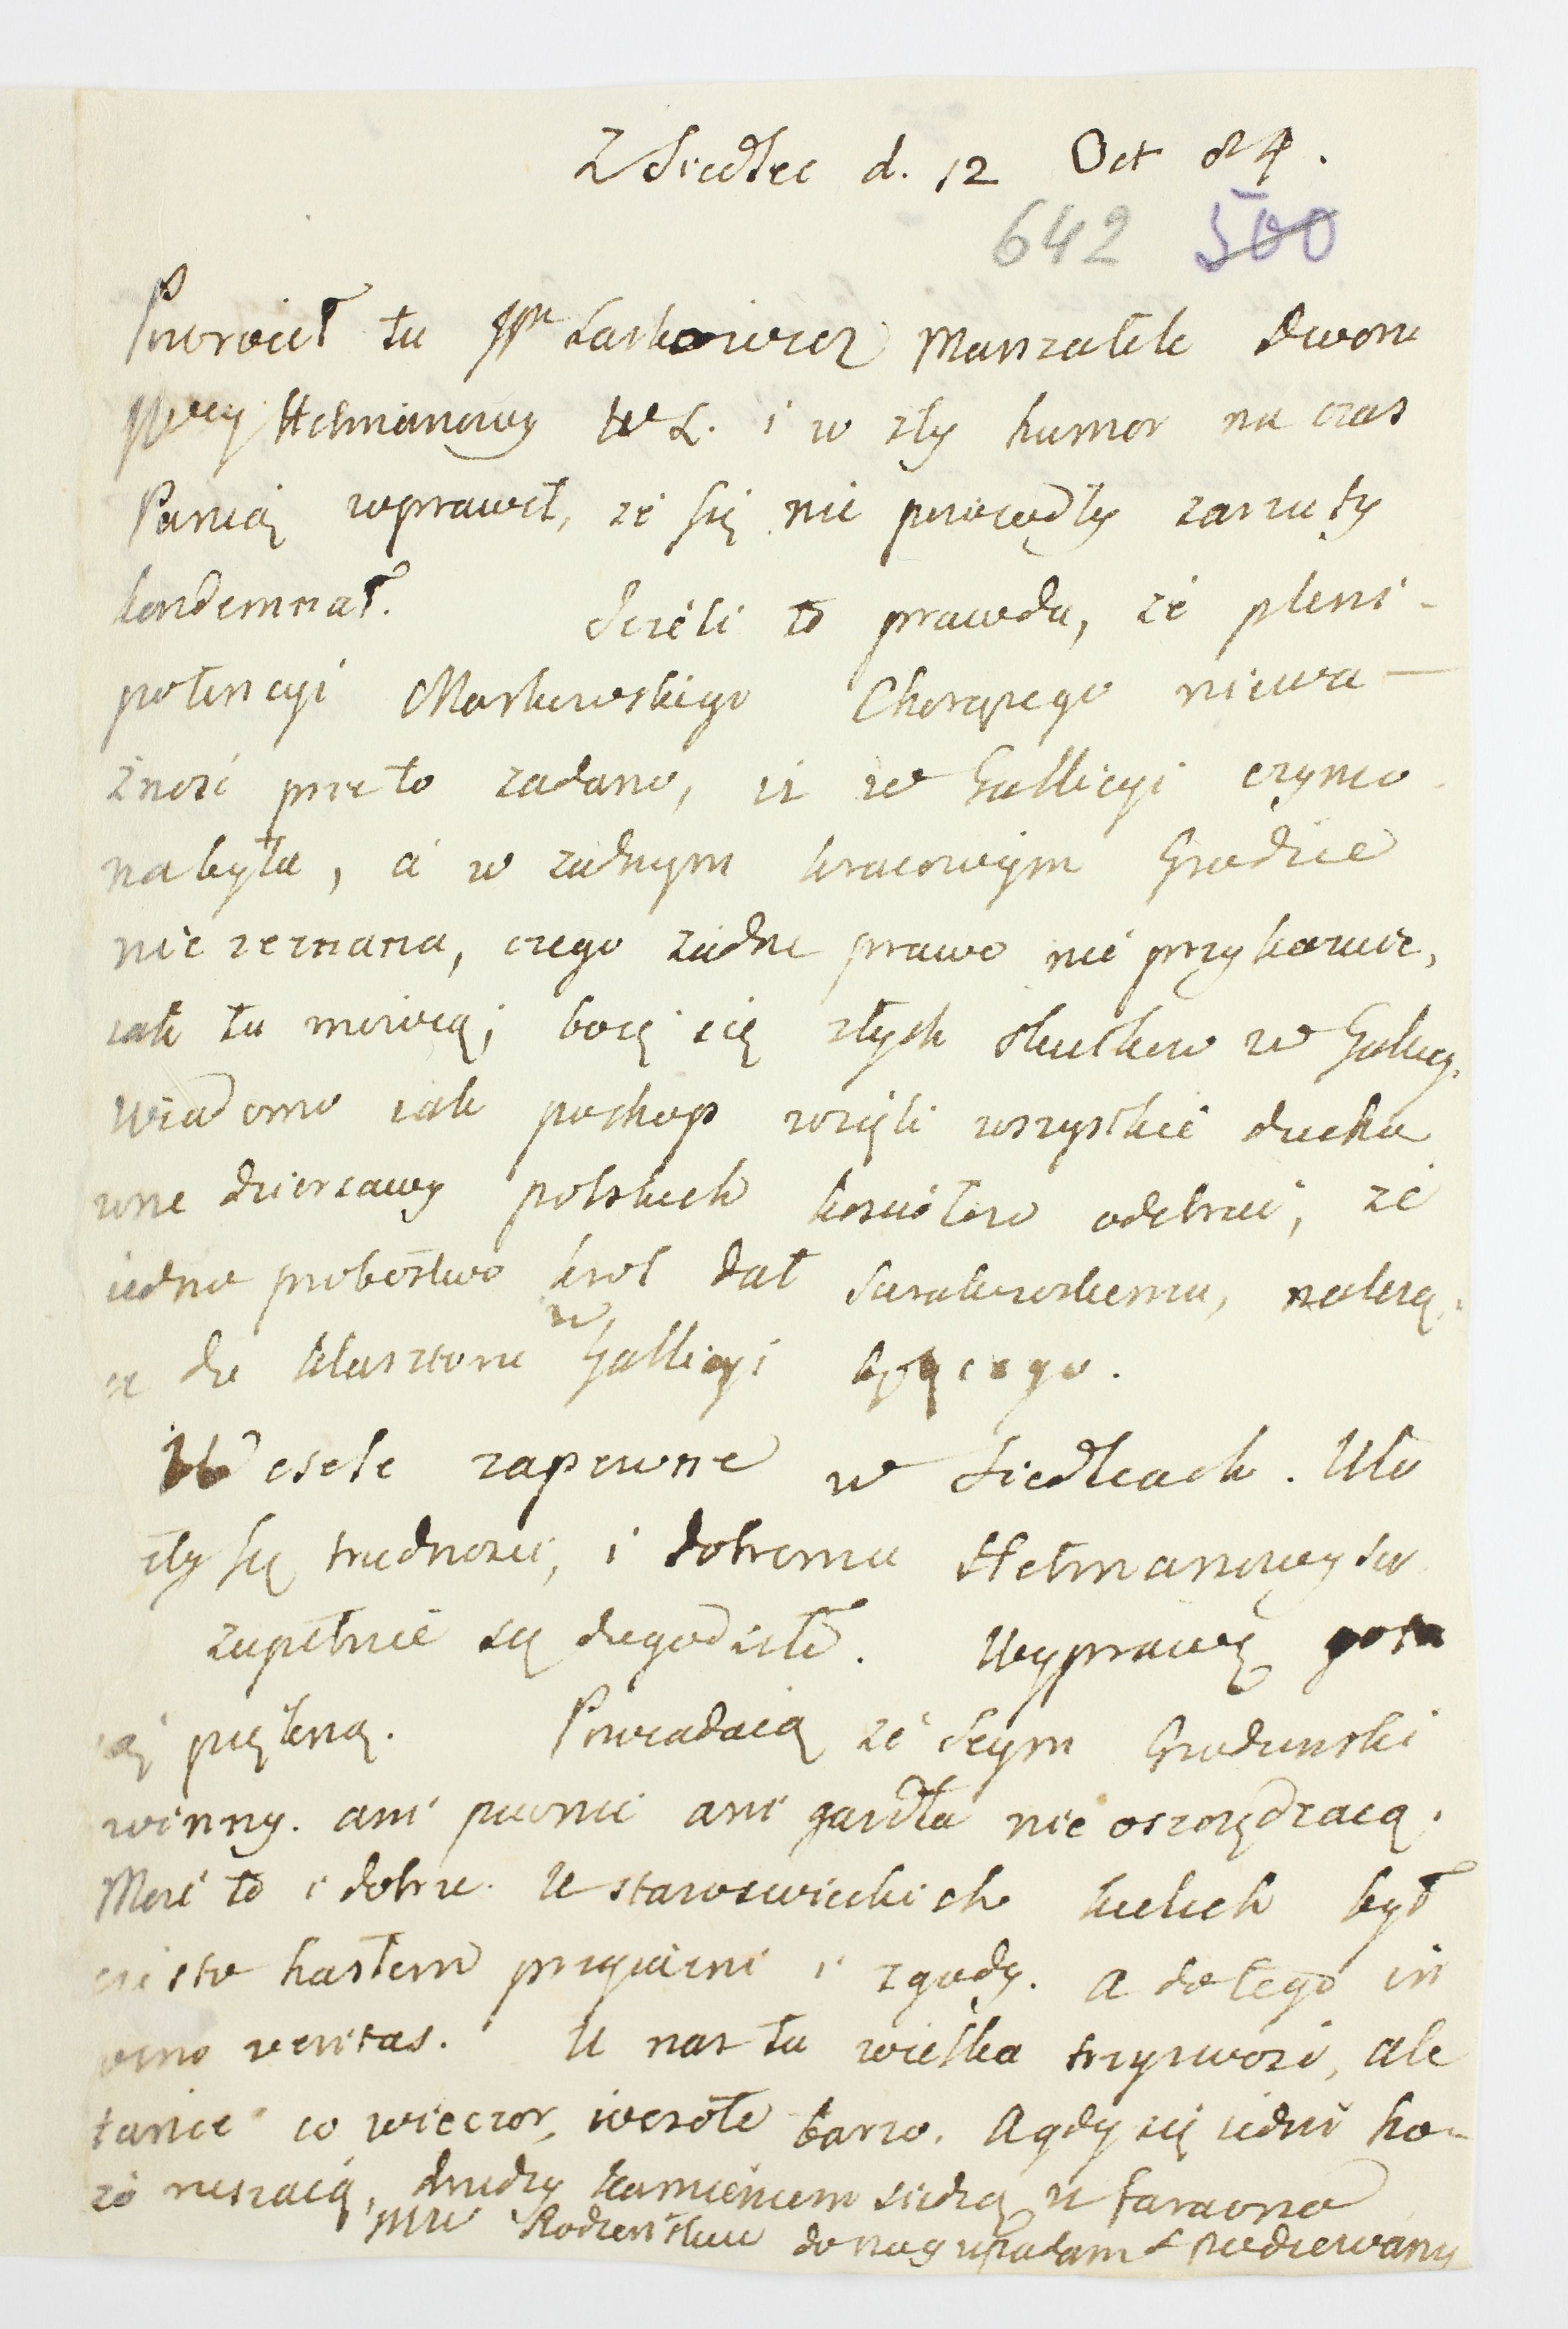 Z Siedlec d. 12 Oct 84.
642 500
Powrócił tu JPn Laskowicz Marszałek dworu
JWey Hetmanowy W L. i w zły humor na czas
Panią wprawił, że się nie powiodły zarzuty
kondemnat. Jeżeli to prawda, że pleni-
potencyi Markowskiego Chorążego niewa-
żność prze to zadano, iż w Gallicyi czynio-
na była, a w żadnym kraiowym Grodzie
nie zeznana, czego żadne prawo nie przykazuie,
iak tu mowią; boię się złych skutkow w Galicy.
Wiadomo iak pochop wzięli wszystkie ducho
wne dzierżawy polskich kościołow odebrać, że
iedno probostwo krol dał Sierakowskiemu, należą-
ce do klasztoru w Gallicyi będącego.
Wesele zapewne w Siedlcach. Uło
żyły się trudności, i dobremu Hetmanowy ser
zupełnie się dogodziło. Wyprawę gotu
ią piękną. Powiadaią że Seym Grodzinski
winny. ani piwnic ani gardła nie oszczędzaią.
Może to i dobrze. U staroswieckich kielich był
często hasłem przyiaźni i zgody. A do tego in
vino veritas. U nas tu wielka trzyźwość, ale
tańce co wieczor, wesoło barzo. A gdy się iedni ho-
żo ruszaią, drudzy kamieniem siedzą u faraona
JMci Rodzeństwu do nog upadam